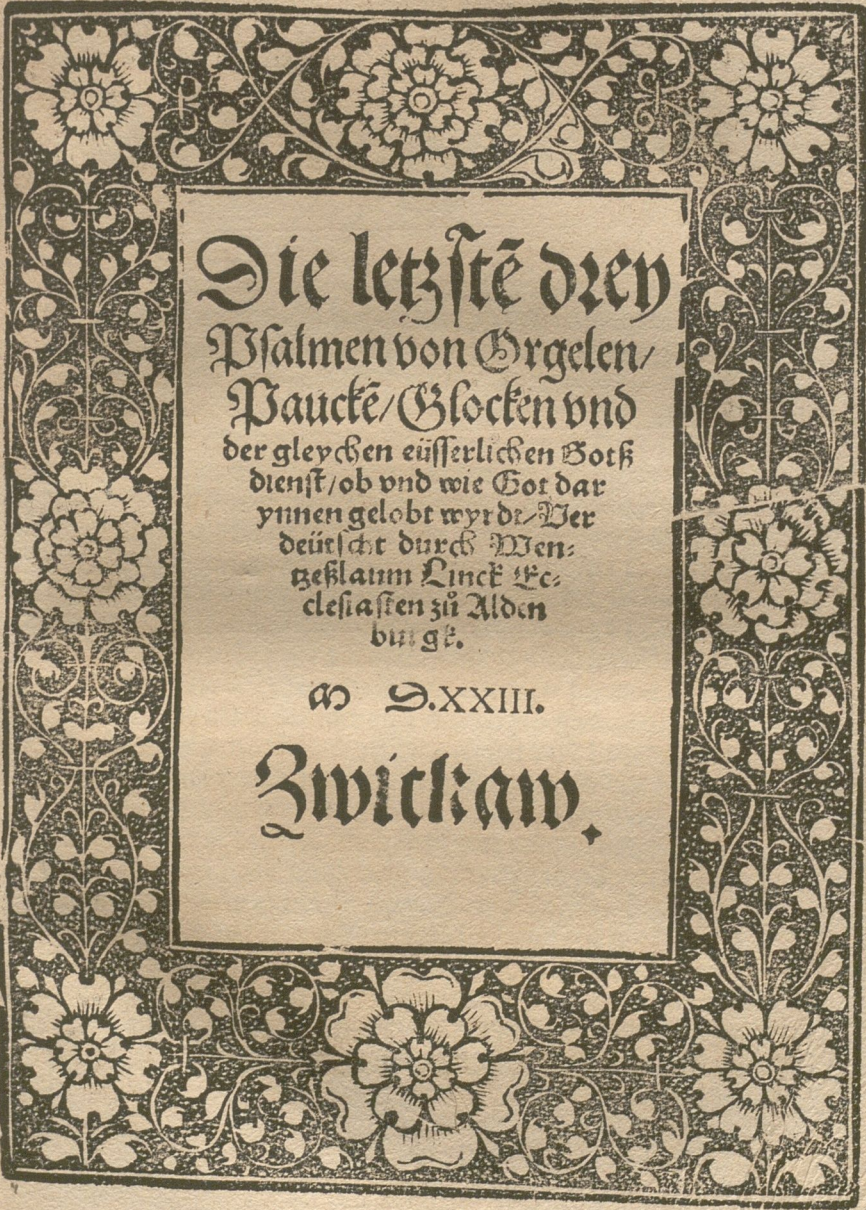 Die letzſtẽ drey
Pſalmen von Orgelen/
Pauckẽ/Glocken vnd
der gleychen eüſſerlichen Gotß
dienſt/ob vnd wie Got dar
ynnen gelobt wyrdt/Ver
deütſcht durch Wen⸗
tzeßlaum Linck Ec⸗
cleſiaſten zů Alden
burgk.
M D.XXIII.
Zwickaw.